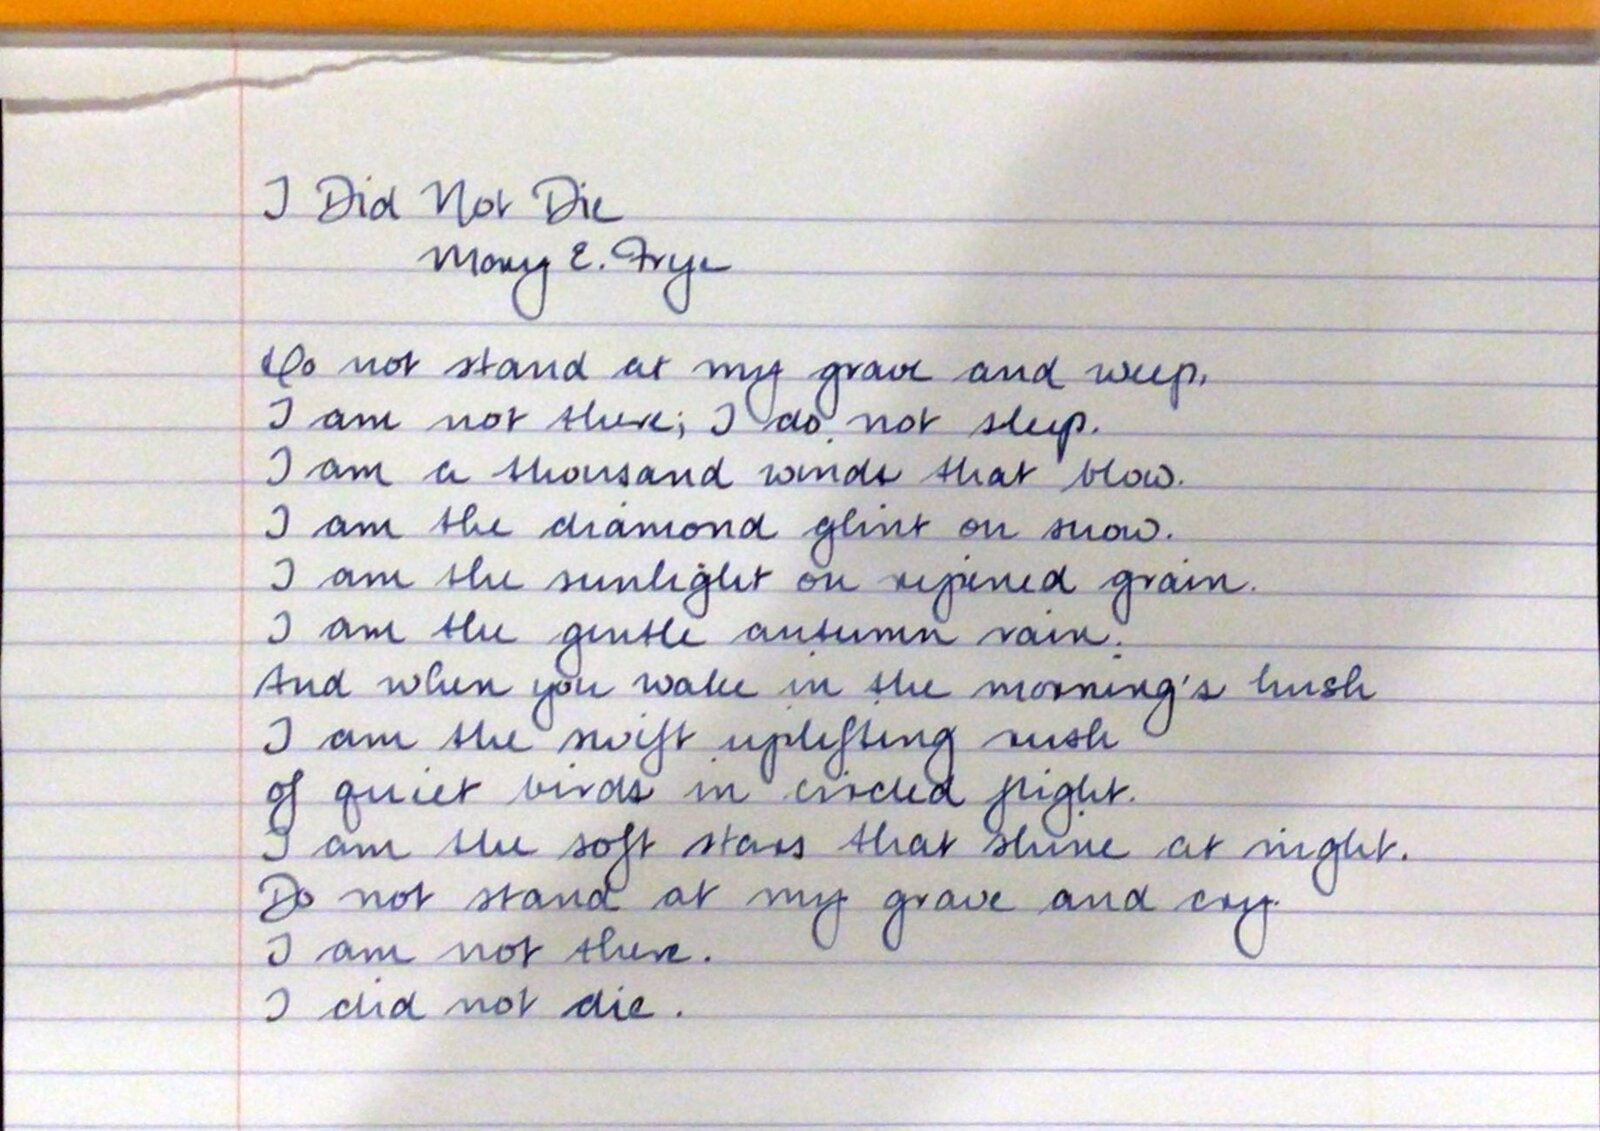 I Did Not Die
Mary E. Frye
Do not stand at my grave and weep,
I am not there; I do not sleep.
I am a thousand winds that blow.
I am the diamond glint on snow.
I am the sunlight on ripened grain.
I am the gentle autumn rain.
And when you wake in the morning's hush
I am the swift uplifting rush
of quiet birds in circled flight.
I am the soft stars that shine at night.
Do not stand at my grave and cry.
I am not there.
I did not die.